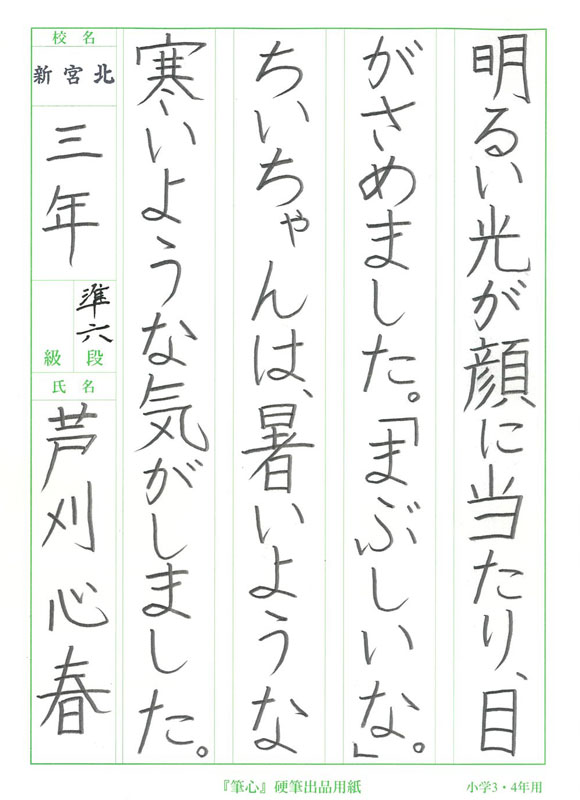 明るい光が顔に当たり、目
がさめました。「まぶしいな。」
ちいちゃんは、暑いような
寒いような気がしました。
校名
新宮北
三年
準六
段
級
氏名
芦刈心春
『筆心』硬筆出品用紙
小学3・4年用